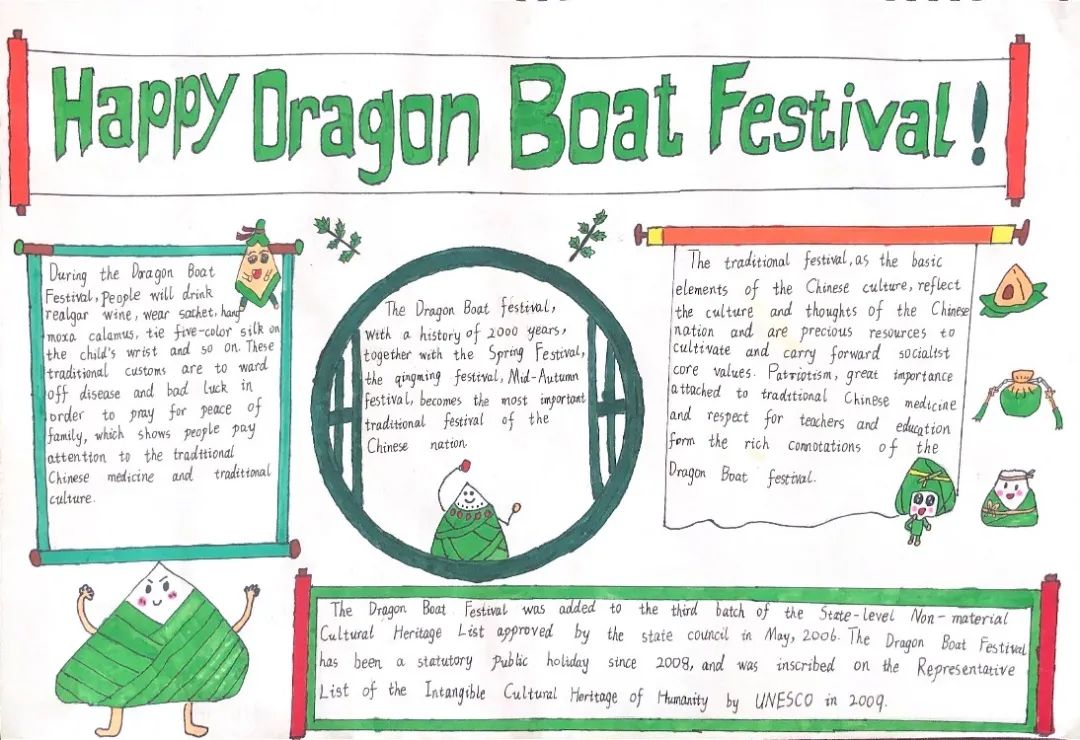 Happy Dragon Boat Festival!
During the Dragon Boat
Festival, people will drink
realgar wine, wear sachet, hang
moxa calamus, tie five-color silk on
the child's wrist and so on. These
traditional customs are to ward
off disease and bad luck in
order to pray for peace of
family, which shows people pay
attention to the traditional
Chinese medicine and traditional
culture.
The Dragon Boat festival,
with a history of 2000 years,
together with the Spring Festival,
the qingming festival, Mid-Autumn
festival, becomes the most important
traditional festival of the
Chinese nation.
The traditional festival, as the basic
elements of the Chinese culture, reflect
the culture and thoughts of the Chinese
nation and are precious resources to
cultivate and carry forward socialist
core values. Patriotism, great importance
attached to traditional Chinese medicine
and respect for teachers and education
form the rich connotations of the
Dragon Boat festival.
The Dragon Boat Festival was added to the third batch of the State-level Non-material
Cultural Heritage List approved by the state council in May, 2006. The Dragon Boat Festival
has been a statutory public holiday since 2008, and was inscribed on the Representative
List of the Intangible Cultural Heritage of Humanity by UNESCO in 2009.